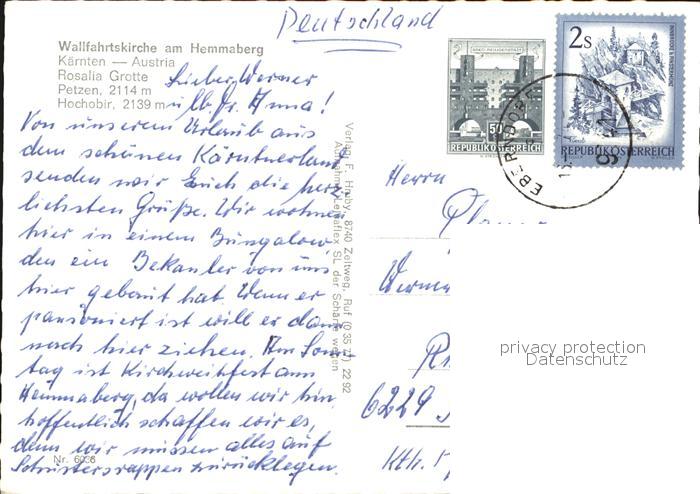 Deutschland
Wallfahrtskirche am Hemmaberg
Kärnten — Austria
Rosalia Grotte
Petzen, 2114 m
Hochobir, 2139 m
Lieber Werner
u. lb. Fr. Anna!
Von unserem Urlaub aus
dem schönen Kärntnerland
senden wir Euch die herz
lichsten Grüße. Wir wohnen
hier in einem Bungalow
den ein Bekannter von uns
hier gebaut hat. Wenn er
pansioniert ist will er dann
nach hier ziehen. Am Sonn
tag ist Kirchweihfest am
Hemmaberg, da wollen wir hin
hoffentlich schaffen wir es,
denn wir müssen alles auf
Schustersrappen zurücklegen.
Nr. 6036
Verlag F. Hruby, 8740 Zeltweg, Ruf (0 35 77) 22 92
Aufnahme: Leicaflex SL der Schärfe wegen
50
REPUBLIK ÖSTERREICH
2S
REPUBLIK ÖSTERREICH
EBERNDORF
Herrn
Werner
6229
Kth.
privacy protection
Datenschutz